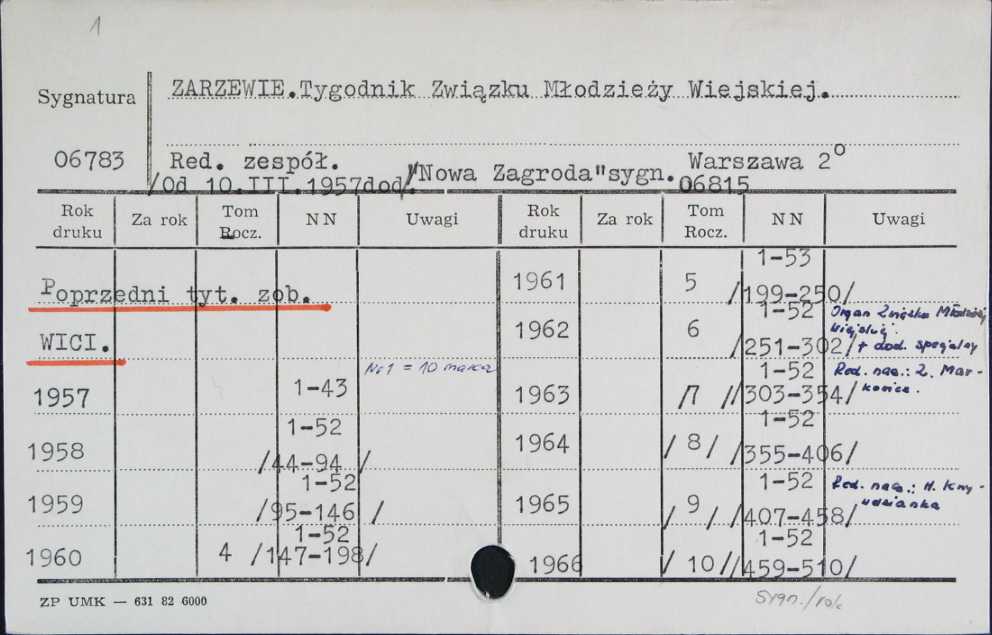 1
Sygnatura
ZARZEWIE.Tygodnik Związku Młodzieży Wiejskiej.
06783
Red. zespół. Warszawa 2°
/Od 10.III.1957dod/"Nowa Zagroda"sygn.06815
Rok druku Za rok Tom Rocz. NN Uwagi Rok druku Za rok Tom Rocz. NN Uwagi
Poprzedni tyt. zob.
WICI.
1957 1-43 Nr 1 = 10 marca
1958 1-52 /44-94 /
1959 1-52 /95-146 /
1960 4 1-52 /147-198/
1961 5 1-53 /199-250/
1962 6 1-52 /251-302/ Organ Związku Młodzieży Wiejskiej. + dod. specjalny
1963 /7 / 1-52 /303-354/ Red. nac.: Z. Mar-
kowicz.
1964 / 8/ 1-52 /355-406/
1965 / 9 / 1-52 /407-458/ Red. nac.: H.
1966 / 10/ 1-52 /459-510/
ZP UMK — 631 82 6000
Sygn./rok